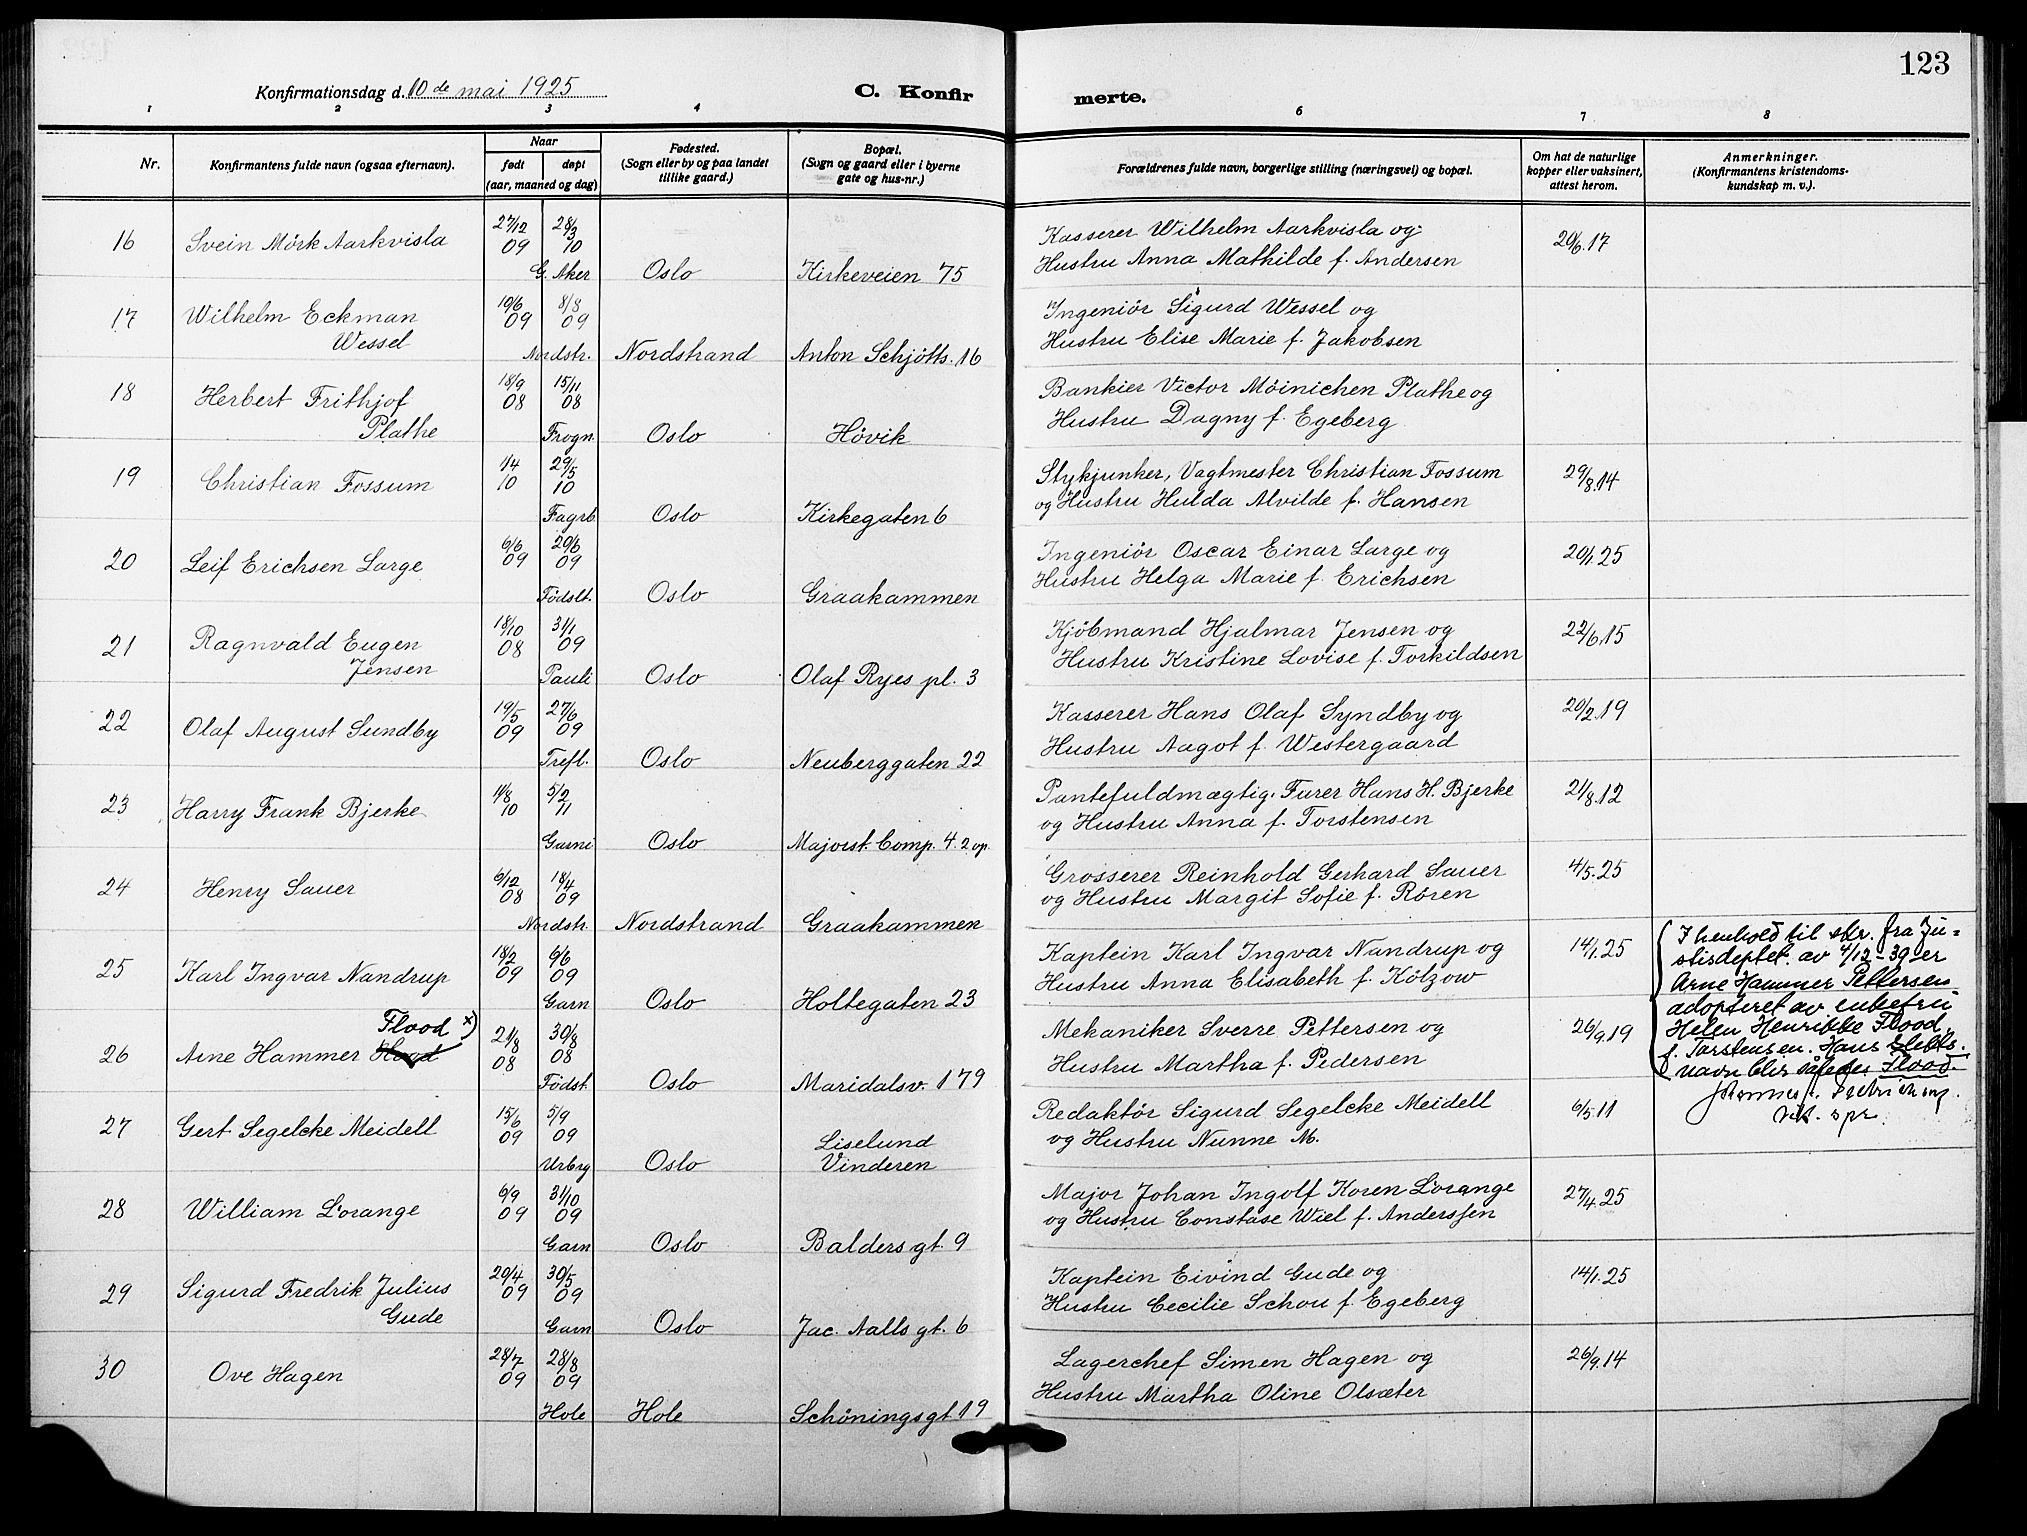 123
Konfirmationsdag d. 10de mai 1925
C. Konfir
merte.
1 2 3 4 5 6 7 8
Nr.
Konfirmantens fulde navn (ogsaa efternavn).
Naar
født døpt
(aar, maaned og dag)
Fødested.
(Sogn eller by og paa landet
tillike gaard.)
Bopæl.
(Sogn og gaard eller i byerne
gate og hus-nr.)
Forældrenes fulde navn, borgerlige stilling (næringsvei) og bopæl.
Om hat de naturlige
kopper eller vaksinert,
attest herom.
Anmerkninger.
(Konfirmantens kristendoms-
kundskap m. v.).
16 Svein Mörk Aarkvisla 27/12 09 28/3 10 Kasserer Wilhelm Aarkvisla og 20/6.17
G. Aker Oslo Kirkeveien 75 Hustru Anna Mathilde f. Andersen
17 Wilhelm Eckman 10/6 09 8/8 09 Ingeniör Sigurd Wessel og
Wessel Nordstr. Nordstrand Anton Schjötts. 16 Hustru Elise Marie f. Jakobsen
18 Herbert Frithjof 18/9 08 15/11 08 Bankier Victor Möinichen Plathe og
Plathe Frogn. Oslo Hövik Hustru Dagny f. Egeberg
19 Christian Fossum 1/4 10 29/5 10 Stykjunker, Vagtmester Christian Fossum 29/8.14
Fagrb. Oslo Kirkegaten 6 og Hustru Hulda Alvilde f. Hansen
20 Leif Erichsen Large 6/6 09 20/6 09 Ingeniör Oscar Einar Large og 20/1.25
Födslt. Oslo Graakammen Hustru Helga Marie f. Erichsen
21 Ragnvald Eugen 18/10 08 31/1 09 Kjöbmand Hjalmar Jensen og 22/6.15
Jensen Pauli Oslo Olaf Ryes pl. 3 Hustru Kristine Lovise f. Torkildsen
22 Olaf August Sundby 19/5 09 27/6 09 Kasserer Hans Olaf Syndby og 20/2.19
Trefl. Oslo Neuberggaten 22 Hustru Aagot f. Westergaard
23 Harry Frank Bjerke 11/8 10 5/2 11 Pantefuldmægtig, Furer Hans H. Bjerke 21/8.12
Garni Oslo Majorst. Comp. 4. 2 op. og Hustru Anna f. Torstensen
24 Henry Sauer 6/12 08 18/4 09 Grosserer Reinhold Gerhard Sauer 4/5.25
Nordstr. Nordstrand Graakammen og Hustru Margit Sofie f. Rören
25 Karl Ingvar Nandrup 18/2 09 6/6 09 Kaptein Karl Ingvar Nandrup og 14/1.25
Garn Oslo Holtegaten 23 Hustru Anna Elisabeth f. Kölzow
Flood x)
26 Arne Hammer 21/8 08 30/8 08 Mekaniker Sverre Pettersen og 26/9.19
Födst. Oslo Maridalsv. 179 Hustru Martha f. Pedersen
I henhold til skr. fra Ju=
stisdeptet. av 4/12-39 er
Arne Hammer Pettersen
adopteret av enkefru
Helen Henrikke Flood,
f. Torstensen. Hans slekts-
navn blir således Flood.
27 Gert Segelcke Meidell 15/6 09 5/9 09 Liselund Redaktör Sigurd Segelcke Meidell 6/5.11
Urbrg Oslo Vinderen og Hustru Nunne M.
28 William L'orange 6/9 09 31/10 09 Major Johan Ingolf Koren L'orange 27/4.25
Garn Oslo Balders gt. 9 og Hustru Constase Wiel f. Anderssen
29 Sigurd Fredrik Julius 20/4 09 30/5 09 Kaptein Eivind Gude og 14/1.25
Gude Garn Oslo Jac. Aalls gt. 6 Hustru Cecilie Schou f. Egeberg
30 Ove Hagen 28/7 09 28/8 09 Lagerchef Simen Hagen og 26/9.14
Hole Hole Schöningsgt 19 Hustru Martha Oline Olsæter